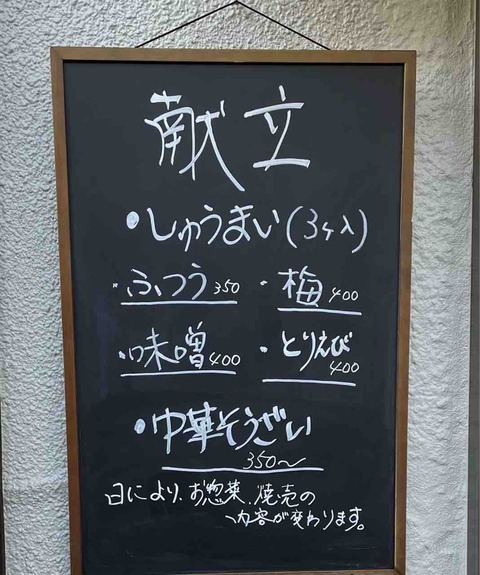 献立
・しゅうまい(3ヶ入)
・ふつう 350 ・梅 400
・味噌 400 ・とりえび 400
・中華そうざい
350〜
日により、お惣菜、焼売の
内容が変わります。